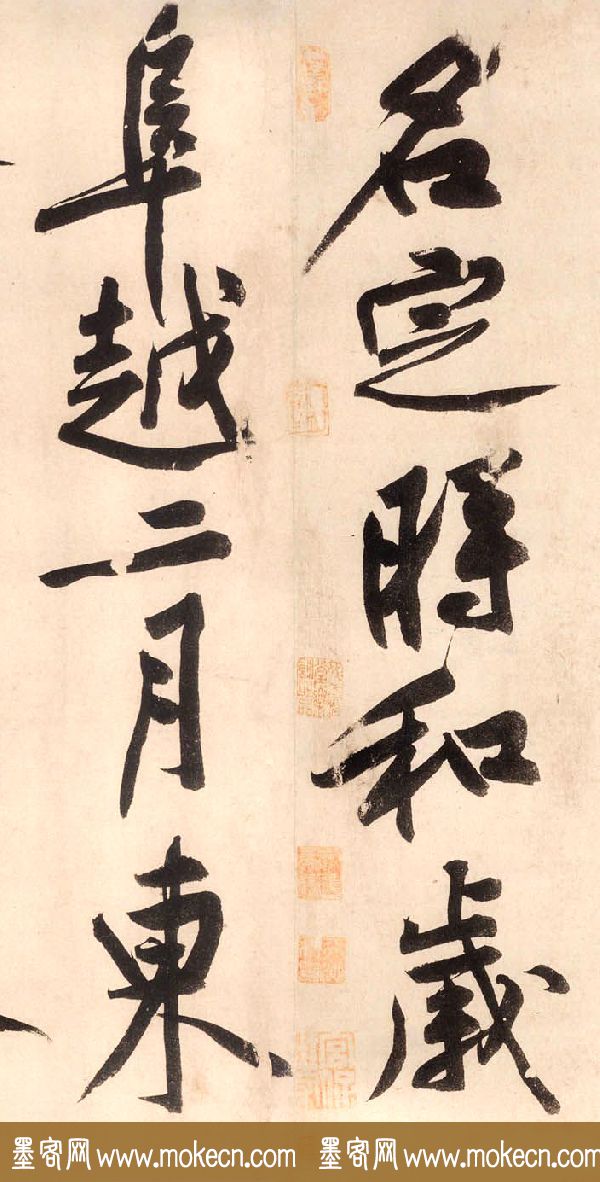 名定時和歲
阜越二月東
墨客网 www.mokecn.com 墨客网 www.mokecn.com